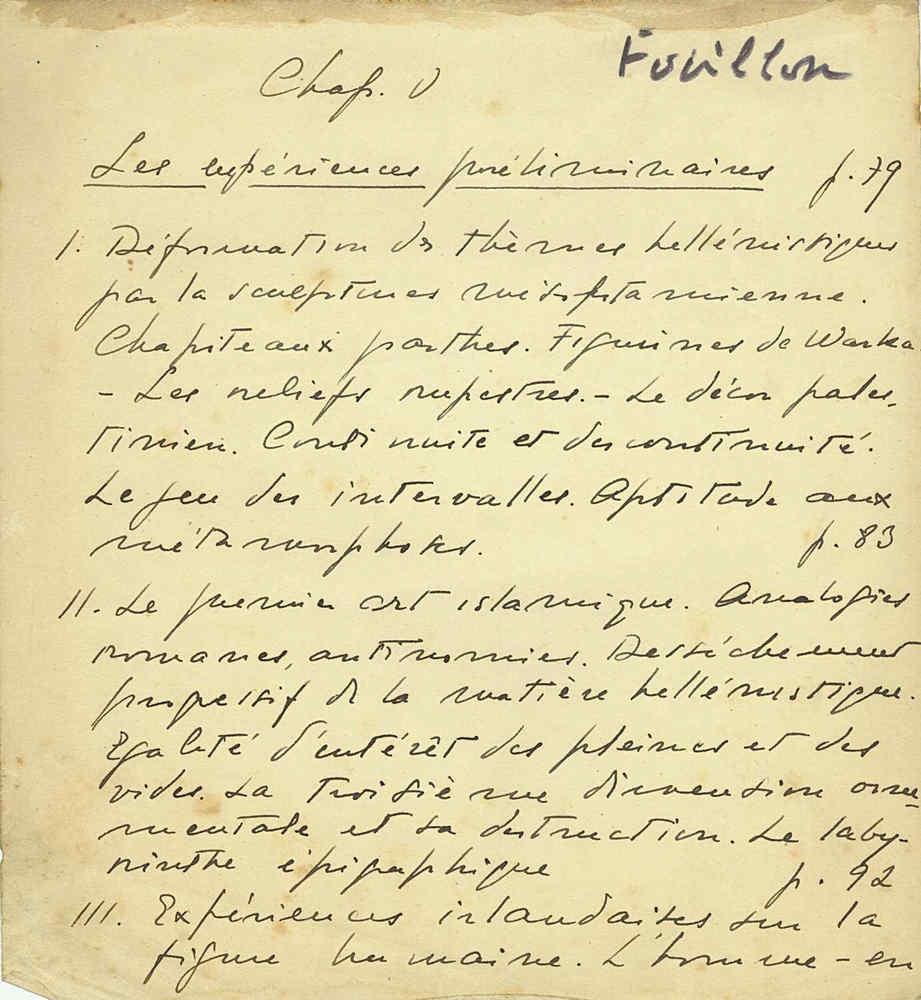 Fouillon
Chap. V
Les expériences préliminaires p. 79
I. Déformation des thèmes hellénistiques
par la sculptures mésopotamienne.
Chapiteaux parthes. Figurines de Warka
- Les reliefs rupestres. - Le décor pales-
tinien. Continuité et discontinuité.
Le jeu des intervalles. Aptitude aux
métamorphoses. p. 83
II. Le premier art islamique. Analogies
romanes, antinomies. Dessèchement
progressif de la matière hellénistique.
Egalité d'intérêt des pleines et des
vides. La troisième dimension orne-
mentale et sa destruction. Le laby-
rinthe épigraphique p. 92
III. Expériences irlandaises sur la
figure humaine. L'homme-en